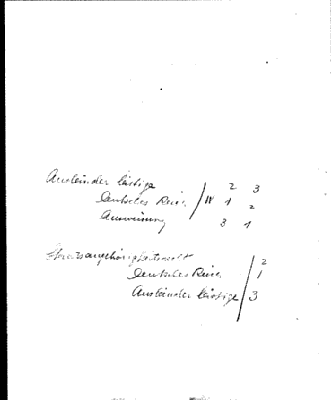 Ausländer lästige 2 3
Deutsches Reich / IV 1 2
Ausweisung 3 1
Staatsangehörigkeit 2
Deutsches Reich 1
Ausländer lästige / 3